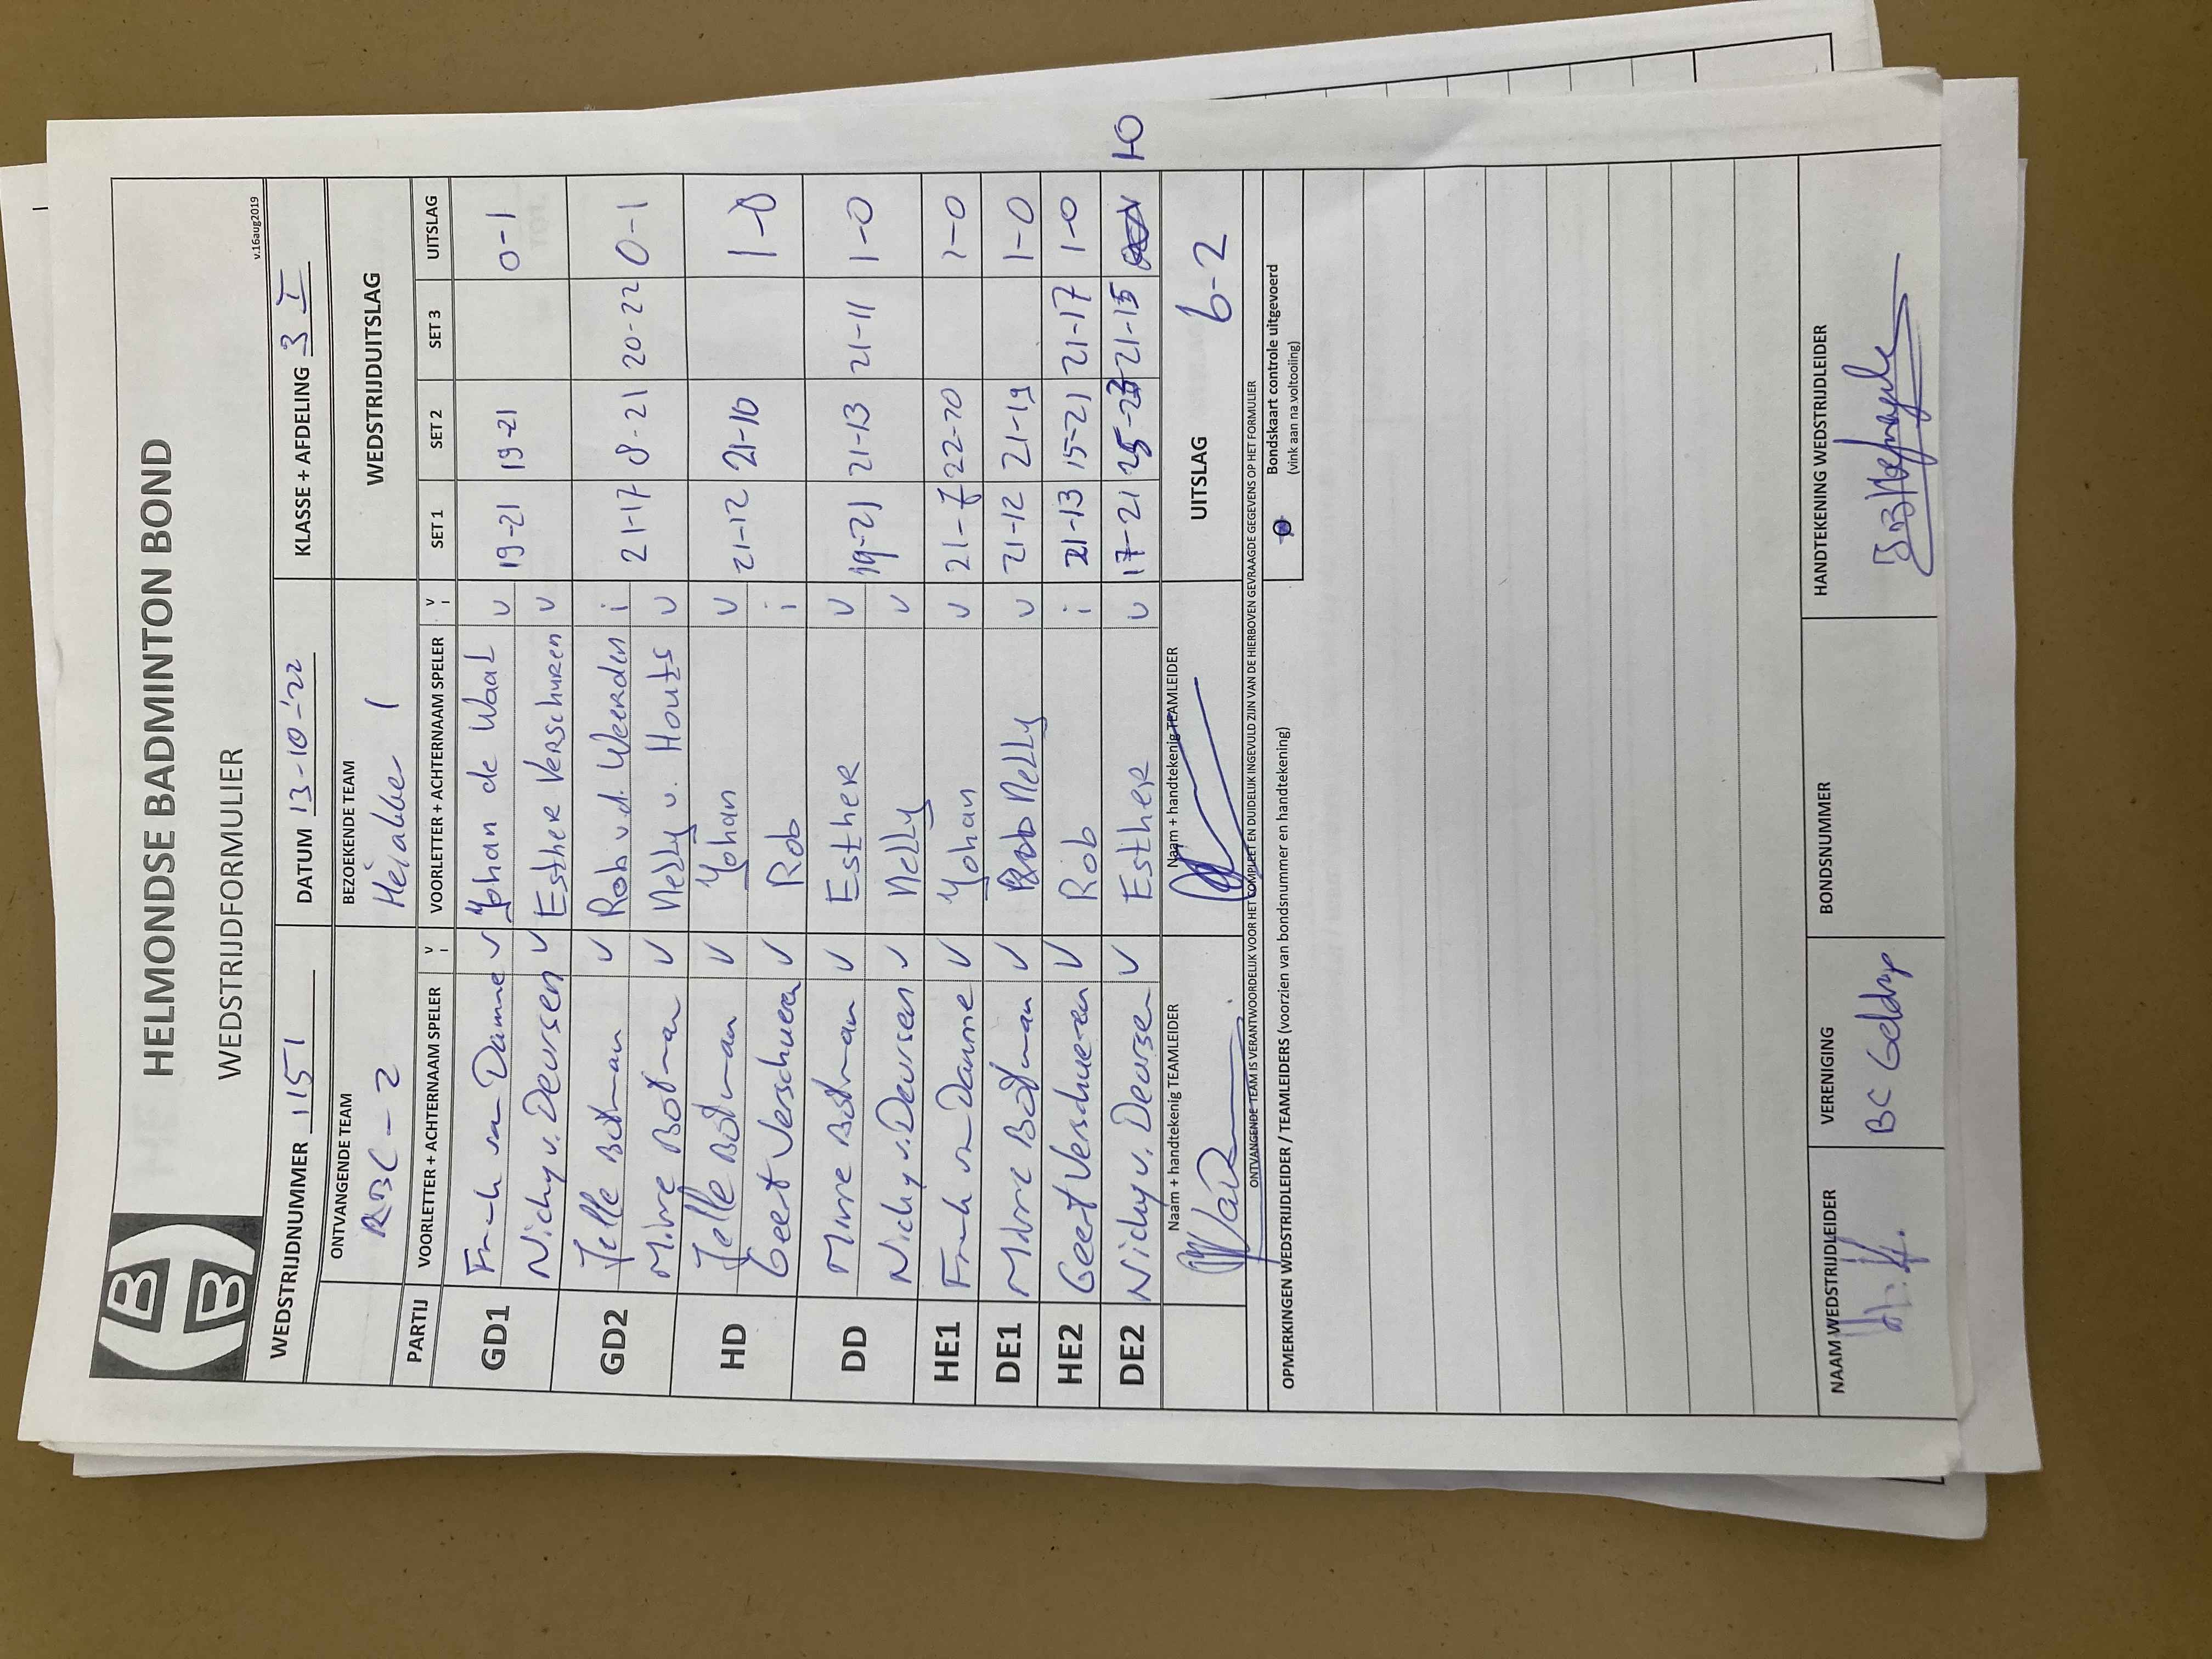 HELMONDSE BADMINTON BOND
WEDSTRIJDFORMULIER
v.16aug2019
WEDSTRIJDNUMMER 1151 DATUM 13-10-'22 KLASSE + AFDELING 3 I
ONTVANGENDE TEAM BEZOEKENDE TEAM WEDSTRIJDUITSLAG
RBC-2 Heiakker 1
PARTIJ VOORLETTER + ACHTERNAAM SPELER V I VOORLETTER + ACHTERNAAM SPELER V I SET 1 SET 2 SET 3 UITSLAG
GD1 Frank van Damme v Yohan de Waal v 19-21 19-21 0-1
Nicky v. Deursen v Esther Verschuren v
GD2 Jelle Botman v Rob v.d. Weerden i 21-17 8-21 20-22 0-1
Mirre Botman v Nelly v. Houts v
HD Jelle Botman v Yohan v 21-12 21-10 1-0
Geert Verschueren v Rob i
DD Mirre Botman v Esther v 19-21 21-13 21-11 1-0
Nicky v. Deursen v Nelly v
HE1 Frank van Damme v Yohan v 21-7 22-20 1-0
DE1 Mirre Botman v Nelly v 21-12 21-19 1-0
HE2 Geert Verschueren v Rob i 21-13 15-21 21-17 1-0
DE2 Nicky v. Deursen v Esther v 17-21 25-23 21-15 1-0
Naam + handtekenig TEAMLEIDER Naam + handtekenig TEAMLEIDER UITSLAG 6-2
ONTVANGENDE TEAM IS VERANTWOORDELIJK VOOR HET COMPLEET EN DUIDELIJK INGEVULD ZIJN VAN DE HIERBOVEN GEVRAAGDE GEGEVENS OP HET FORMULIER
OPMERKINGEN WEDSTRIJDLEIDER / TEAMLEIDERS (voorzien van bondsnummer en handtekening) Bondskaart controle uitgevoerd
(vink aan na voltooiing)
NAAM WEDSTRIJDLEIDER VERENIGING BONDSNUMMER HANDTEKENING WEDSTRIJDLEIDER
BC Geldrop